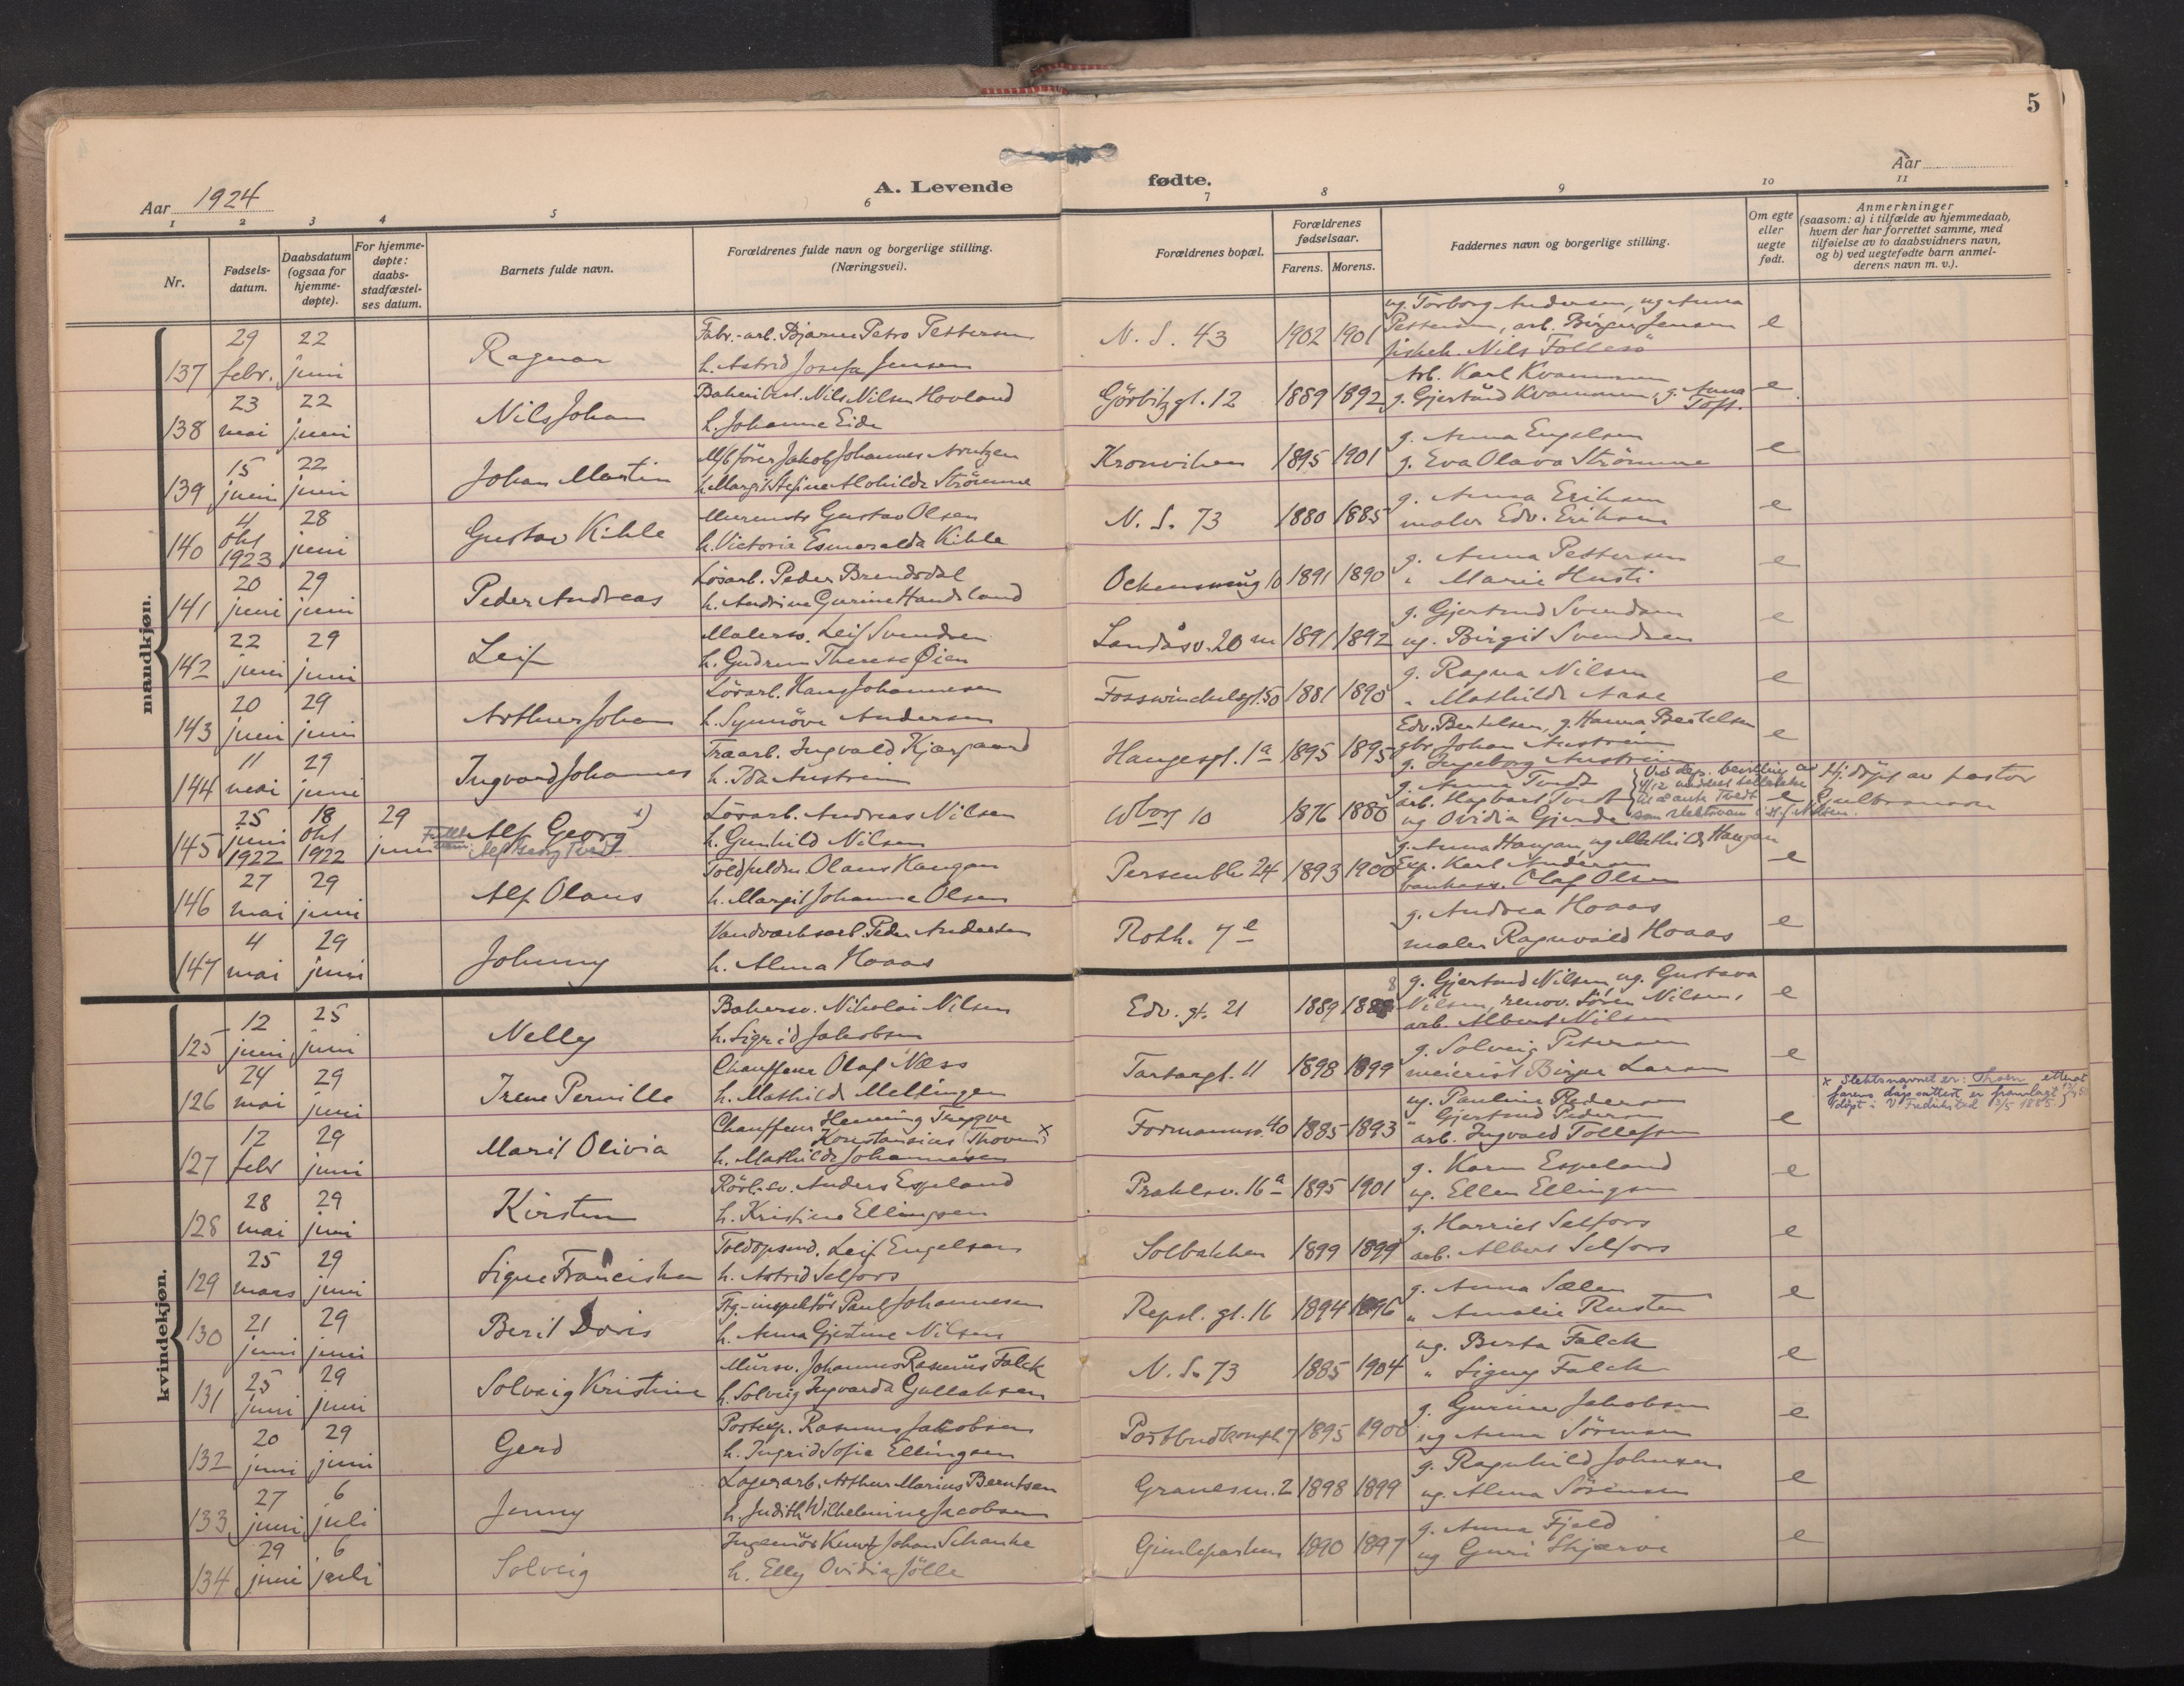 5
Aar 1924
A. Levende
fødte.
Aar
1 2 3 4 5 6 7 8 9 10 11
Nr.
Fødsels-
datum.
Daabsdatum
(ogsaa for
hjemme-
døpte).
For hjemme-
døpte:
daabs-
stadfæstel-
ses datum.
Barnets fulde navn.
Forældrenes fulde navn og borgerlige stilling.
(Næringsvei).
Forældrenes bopæl.
Forældrenes
fødselsaar.
Farens. Morens.
Faddernes navn og borgerlige stilling.
Om egte
eller
uegte
født.
Anmerkninger
(saasom: a) i tilfælde av hjemmedaab,
hvem der har forrettet samme, med
tilføielse av to daabsvidners navn,
og b) ved uegtefødte barn anmel-
derens navn m. v.).
mandkjøn.
137 29 febr. 22 juni
Ragnar
Fabr.-arb. Bjarne Petro Pettersen
h. Astrid Josefa Jensen
N. S. 43 1902 1901
ug. Torborg Andersen, ug Anna
Pettersen, arb. Birger Jensen
fiskeh. Nils Follesö
e
138 23 mai 22 juni
Nils Johan
Nils Nilsen Hovland
h. Johanne Eide
Görbitzgt. 12 1889 1892
Arb. Karl Kvammen
g. Gjertrud Kvammen, g. Anna
Toft.
e
139 15 juni 22 juni
Johan Martin
M/b fører Jakob Johannes Arntzen
h. Margit Mathilde Strömme
Kronviken 1895 1901
g. Anna Engelsen
g. Eva Olava Strömme
e
140 4 okt 1923 28 juni
Gustav Kihle
Murmstr Gustav Olsen
h. Victoria Esmeralda Kihle
N. S. 73 1880 1885
g. Anna Eriksen
maler Edv. Eriksen
e
141 20 juni 29 juni
Peder Andreas
Lösarb. Peder Brendsdal
h. Andrine Gurine Handeland
10 1891 1890
g. Anna Pettersen
" Marie Husti
e
142 22 juni 29 juni
Leif
Malersv. Leif Svendsen
h. Gudrun Therese Øien
Landåsv. 20 m 1891 1892
g. Gjertrud Svendsen
ug. Birgit Svendsen
e
143 20 juni 29 juni
Arthur Johan
Lösarb. Hans Johannesen
h. Synnöve Andersen
Fosswinckelsgt. 50 1881 1890
g. Ragna Nilsen
" Mathilde Aase
e
144 11 mai 29 juni
Ingvard Johannes
Træarb. Ingvald Kjærgaard
h. Ida Austrim
Haugesgt. 1a 1895 1895
Edv. Bertelsen, g. Hanna Bertelsen
gbr. Johan Austrim
g. Ingeborg Austrim
e
145 25 juni 1922 18 okt 1922 29 juni
Alf Georg x)
Alf Georg Tvedt
Lösarb. Andreas Nilsen
h. Gunhild Nilsen
Wborg 10 1876 1880
g. Anna Tvedt
arb. Hagbart Tvedt
ug Ovidia Gjerde
e
Hj.døpt av pastor
Gulbranson
146 27 mai 29 juni
Alf Olaus
Olaus Haugan
h. Margit Johanne Olsen
Persenbk. 24 1893 1900
g. Anna Haugan, ug Mathilde Haugan
Exp. Karl Andersen
bankass. Olaf Olsen
e
147 4 mai 29 juni
Johnny
Vandverksarb. Peder Andersen
h. Alma Hoaas
Roth. 7e
g. Andrea Hoaas
maler Ragnvald Hoaas
e
kvindekjøn.
125 12 juni 25 juni
Nelly
Bakersv. Nikolai Nilsen
h. Sigrid Jakobsen
Edv. gt. 21 1889 188 8
g. Gjertrud Nilsen, ug. Gustava
Nilsen, renov. Sören Nilsen,
arb. Albert Nilsen
e
126 24 mai 29 juni
Irene Pernille
Chauffeur Olaf Næss
h. Mathilde Mellingen
Tartargt. 11 1898 1899
g. Solveig Petersen
meierist Birger Larsen
e
127 17 febr 29 juni
Marit Olivia
Chauffeur Henning Trygve
Konstansius Thoven x
h. Mathilde Johannesen
Formannsv. 40 1885 1893
ug. Pauline Pedersen
" Gjertrud Pedersen
arb. Ingvald Tollefsen
e
x Slektsnavnet er: Thoen
farens dåpsattest er framlagt
(døpt i V. Fredrikstad 3/5 1885.)
128 28 mai 29 juni
Kirsten
Rörl.sv. Anders Espeland
h. Kristine Ellingsen
Prahlsv. 16a 1895 1901
g. Karen Espeland
ug. Ellen Ellingsen
e
129 25 mars 29 juni
Signe Franciska
Toldopsynd. Leif Engelsen
h. Astrid Selfors
Solbakken 1899 1899
g. Harriet Selfors
arb. Albert Selfors
e
130 21 juni 29 juni
Berit Doris
Ftg.-inspektör Paul Johannesen
h. Anna Gjertine Nilsen
Repsl. gt. 16 1894 1896
g. Anna Sælen
" Amalie Rusten
e
131 25 juni 29 juni
Solveig Kristine
Mursv. Johannes Rasmus Falck
h. Solveig Ingvarda Gullaksen
N. S. 73 1885 1904
ug. Berta Falck
" Signy Falck
e
132 20 juni 29 juni
Gerd
Postexp. Rasmus Jakobsen
h. Ingrid Sofie Ellingsen
Postbudkompl. 7 1895 1900
g. Gurine Jakobsen
ug Anna Sörensen
e
133 27 juni 6 juli
Jenny
Lagerarb. Arthur Marius Berntsen
h. Judith Wilhelmine Jacobsen
Granesm. 2 1898 1899
g. Ragnhild Johnsen
ug. Alma Sörensen
e
134 29 juni 6 juli
Solveig
Ingeniör Knut Johan Schanke
h. Elly Ovidia Jölle
Gimleparken 1890 1897
g. Anna Fjeld
ug Guri Skjærve
e